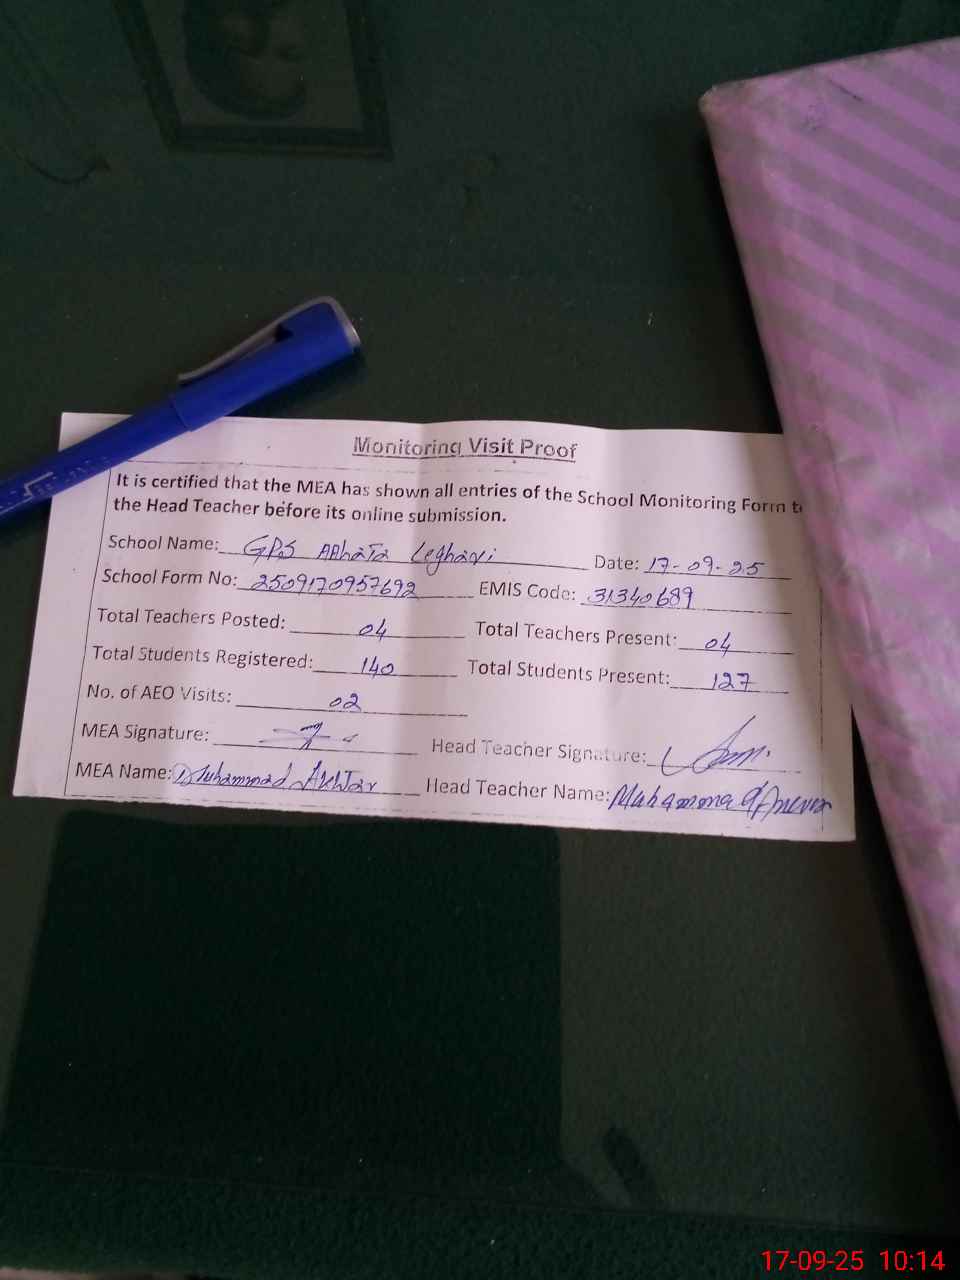 Monitoring Visit Proof
It is certified that the MEA has shown all entries of the School Monitoring Form to
the Head Teacher before its online submission.
School Name: GPS AAhata Leghari Date: 17-09-25
School Form No: 2509170957692 EMIS Code: 31340689
Total Teachers Posted: 04 Total Teachers Present: 04
Total Students Registered: 140 Total Students Present: 127
No. of AEO Visits: 02
MEA Signature: Head Teacher Signature:
MEA Name: Muhammad Akhtar Head Teacher Name: Muhammad Anever
17-09-25 10:14